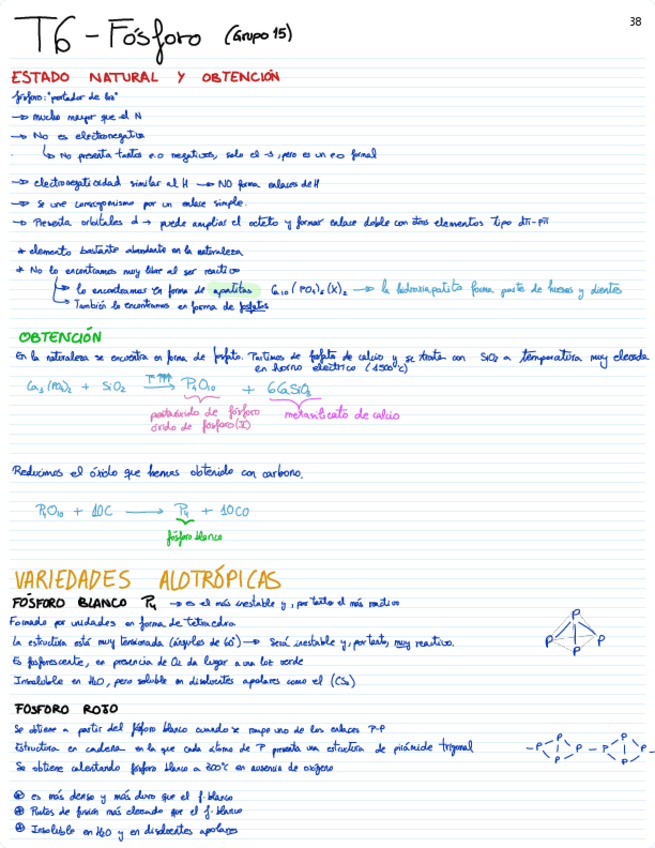 38
T6 - Fósforo (Grupo 15)
ESTADO NATURAL Y OBTENCIÓN
fósforo: "portador de luz"
→ mucho mayor que el N
→ No es electronegativo
↳ No presenta tantos e.o negativos, solo el -3, pero es un e.o formal
→ electronegatividad similar al H → NO forma enlaces de H
→ Se une consigo mismo por un enlace simple.
→ Presenta orbitales d → puede ampliar el octeto y formar enlace doble con otros elementos tipo dπ-pπ
* elemento bastante abundante en la naturaleza
* No lo encontramos muy libre al ser reactivo
↳ lo encontramos en forma de apatitas Ca₁₀(PO₄)₆(X)₂ → la hidroxiapatita forma parte de huesos y dientes
↳ También lo encontramos en forma de fosfatos
OBTENCIÓN
En la naturaleza se encuentra en forma de fosfato. Partimos de fosfato de calcio y se trata con SiO₂ a temperatura muy elevada
en horno eléctrico (1500°C)
Ca₃(PO₄)₂ + SiO₂ T↑↑↑→ P₄O₁₀ + 6CaSiO₃
pentaóxido de fósforo metasilicato de calcio
óxido de fósforo (V)
Reducimos el óxido que hemos obtenido con carbono.
P₄O₁₀ + 10C → P₄ + 10CO
fósforo blanco
VARIEDADES ALOTRÓPICAS
FÓSFORO BLANCO P₄ → es el más inestable y, por tanto el más reactivo
Formado por unidades en forma de tetraedro
La estructura está muy tensionada (ángulos de 60°) → Será inestable y, por tanto, muy reactivo.
Es fosforescente, en presencia de O₂ da lugar a una luz verde
Insoluble en H₂O, pero soluble en disolventes apolares como el (CS₂)
P
P P
P
FÓSFORO ROJO
Se obtiene a partir del fósforo blanco cuando se rompe uno de los enlaces P-P
Estructura en cadena en la que cada átomo de P presenta una estructura de pirámide trigonal
Se obtiene calentando fósforo blanco a 300°C en ausencia de oxígeno
P P
-P P-P P-
P P
⊕ es más denso y más duro que el f. blanco
⊕ Puntos de fusión más elevado que el f. blanco
⊕ Insoluble en H₂O y en disolventes apolares